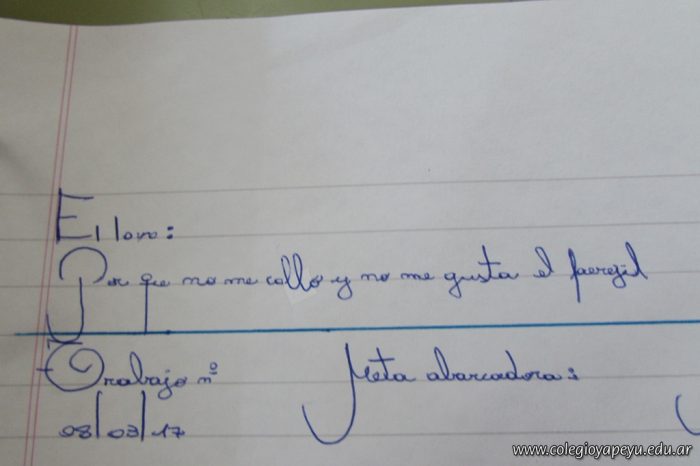 El loro:
Por que no me callo y no me gusta el paeregil
Trabajo nº Meta abarcadora:
08/03/17
www.colegioyapeyu.edu.ar